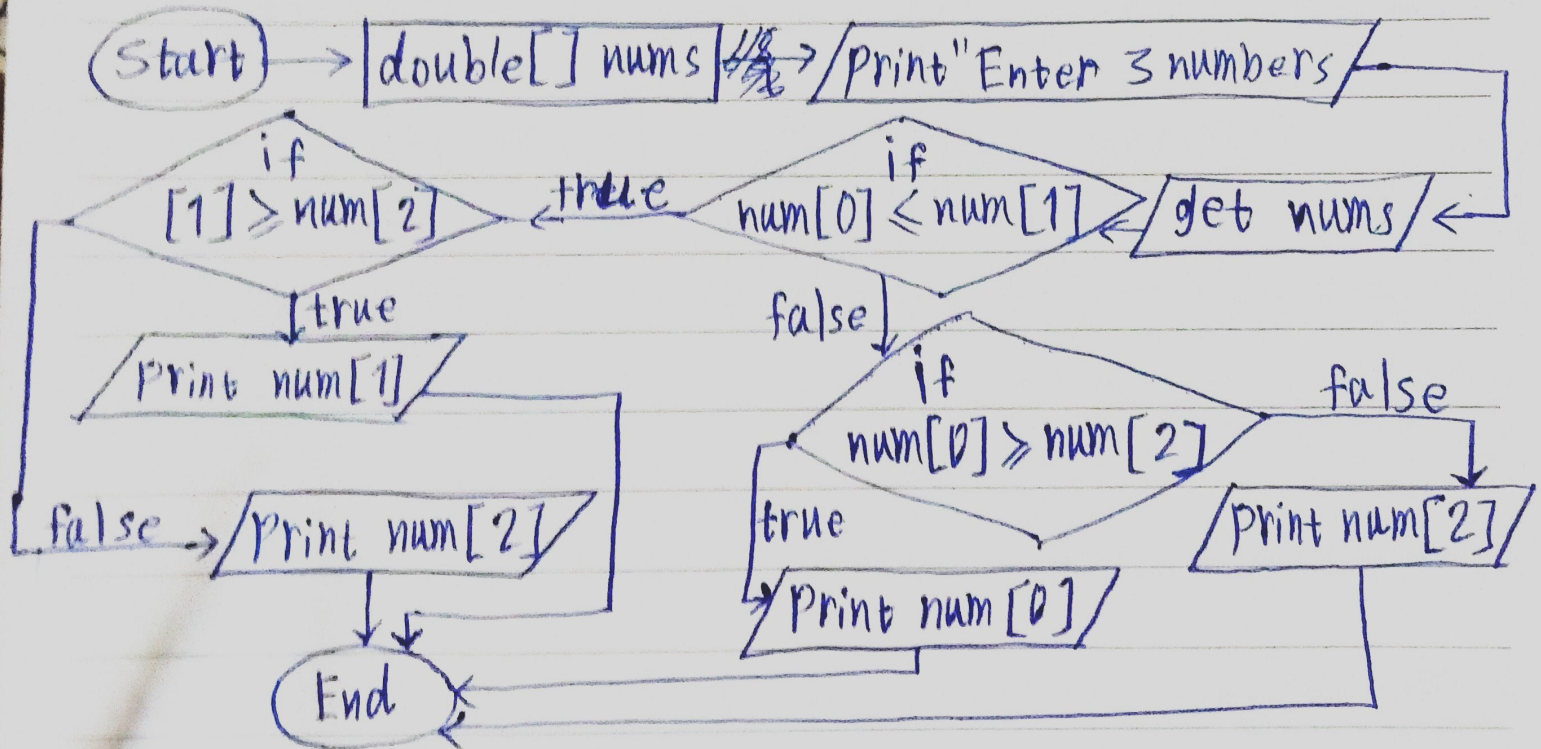 Start
double[] nums
Print "Enter 3 numbers
get nums
if
num[0] ⩽ num[1]
true
if
[1] ⩾ num[2]
true
Print num[1]
false
Print num[2]
false
if
num[0] ⩾ num[2]
false
Print num[2]
true
Print num[0]
End